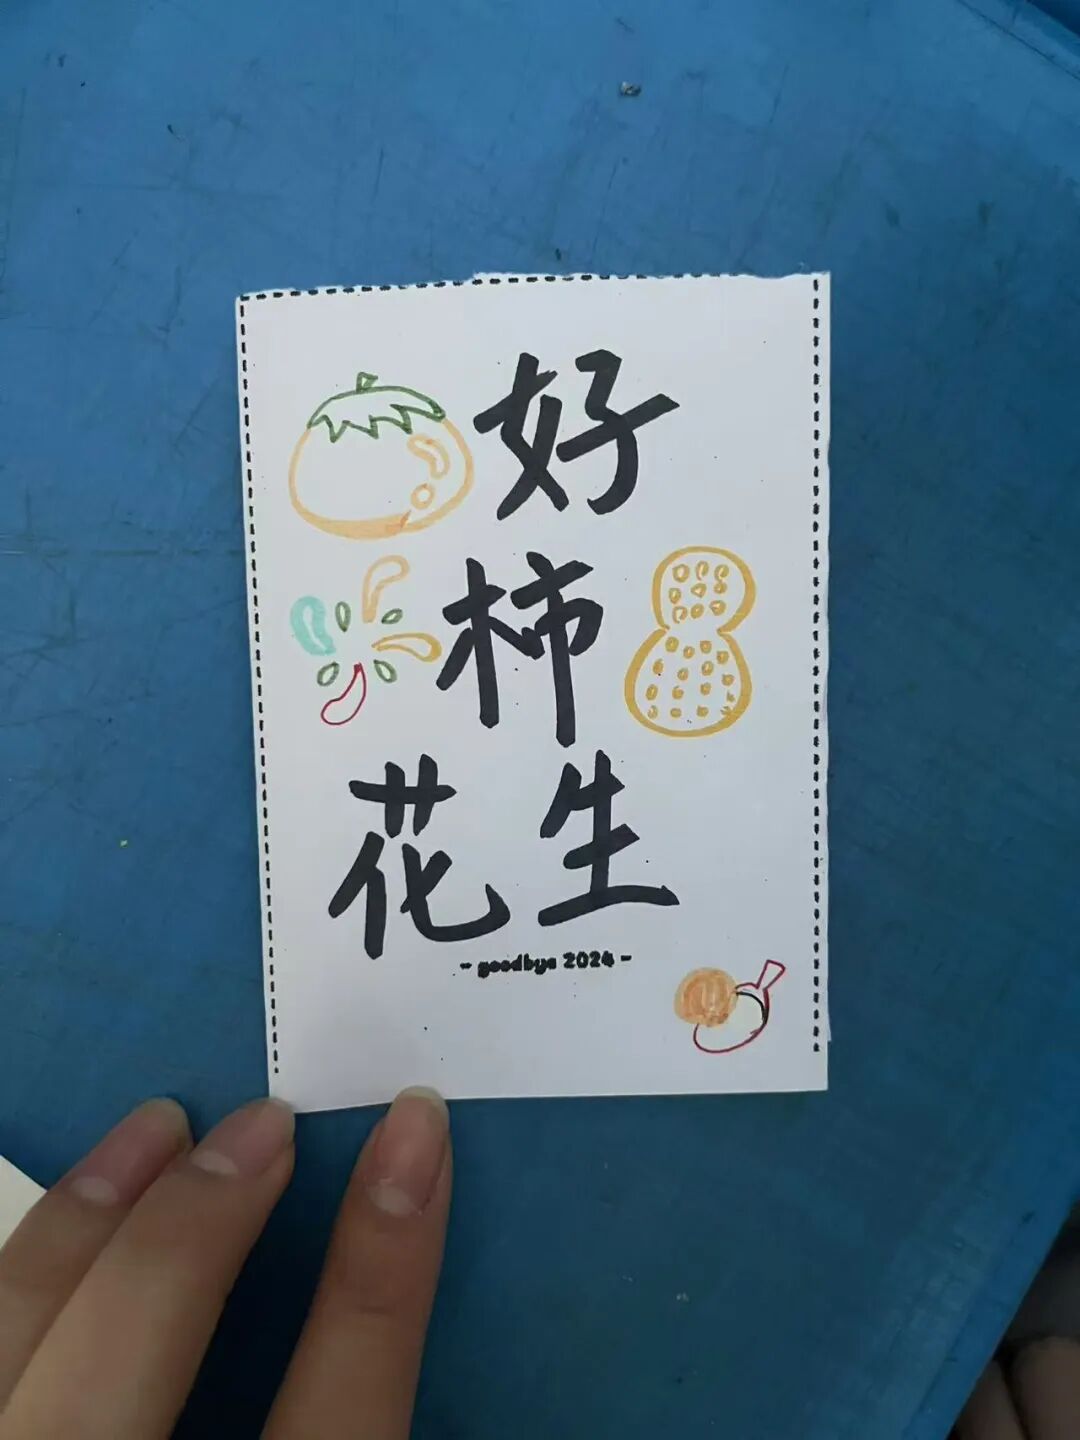 好
柿
花生
- goodbye 2024 -